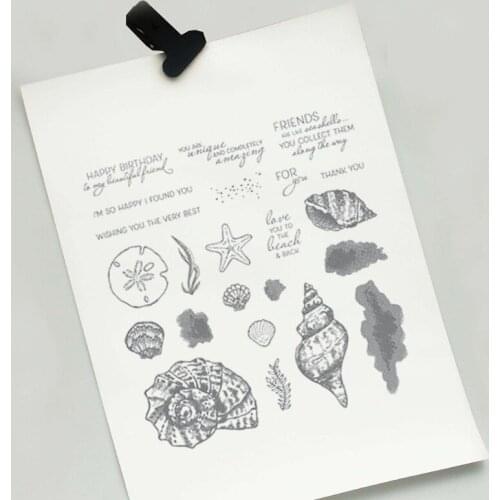 HAPPY BIRTHDAY
to my beautiful friend
YOU ARE
unique
AND COMPLETELY
amazing
FRIENDS
ARE LIKE seashells...
YOU COLLECT THEM
along the way
I'M SO HAPPY I FOUND YOU
FOR
you
THANK YOU
WISHING YOU THE VERY BEST
love
YOU TO
THE
beach
& BACK